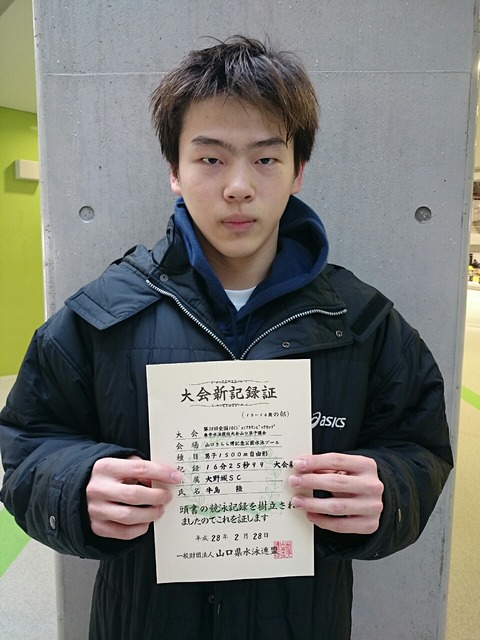 大会新記録証
(13~14歳の部)
大会 第38回全国JOCジュニアオリンピックカップ
春季水泳競技大会山口県予選会
会場 山口きらら博記念公園水泳プール
種目 男子1500m自由形
記録 16分25秒99 大会新
属 大野城SC
氏名 牛島 陸
頭書の競泳記録を樹立され
ましたのでこれを証します
平成28年2月28日
一般財団法人 山口県水泳連盟
asics